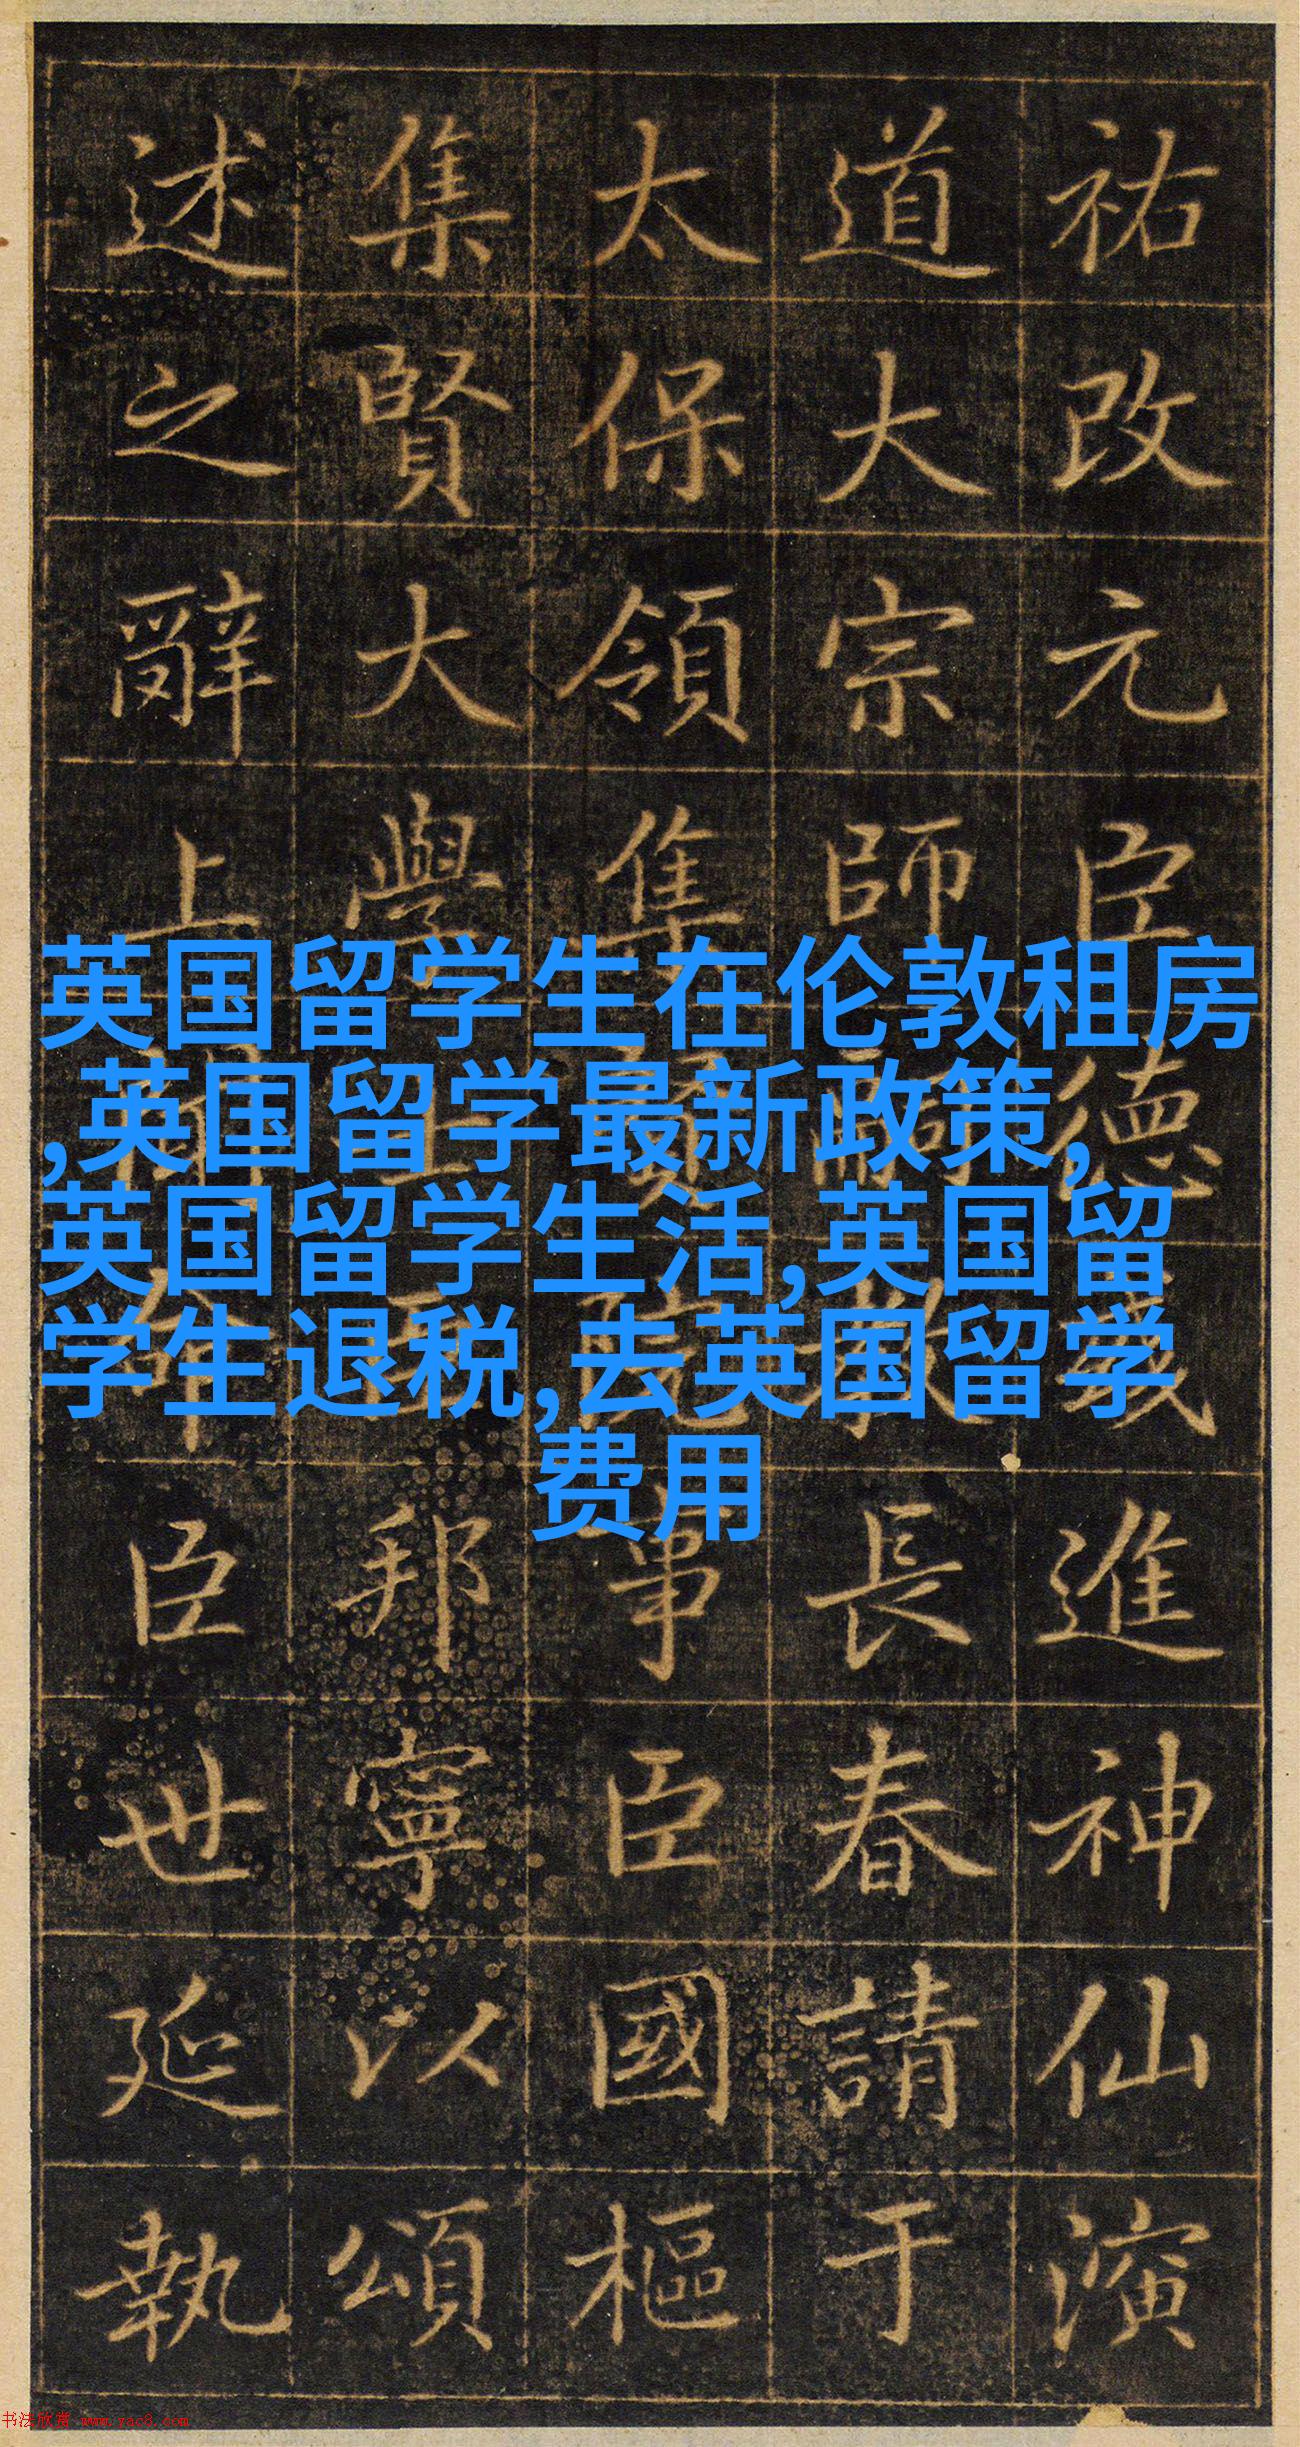 祐改元臣德義進神仙演
道大宗師嗣教長春請于
太保領集賢院事臣國樞
集賢大學士臣邦寧以頌
述之辭上聞命臣世延執
英国留学生在伦敦租房
,英国留学最新政策,
英国留学生活,英国留
学生退税,去英国留学
费用
书法欣赏 www.yac8.com